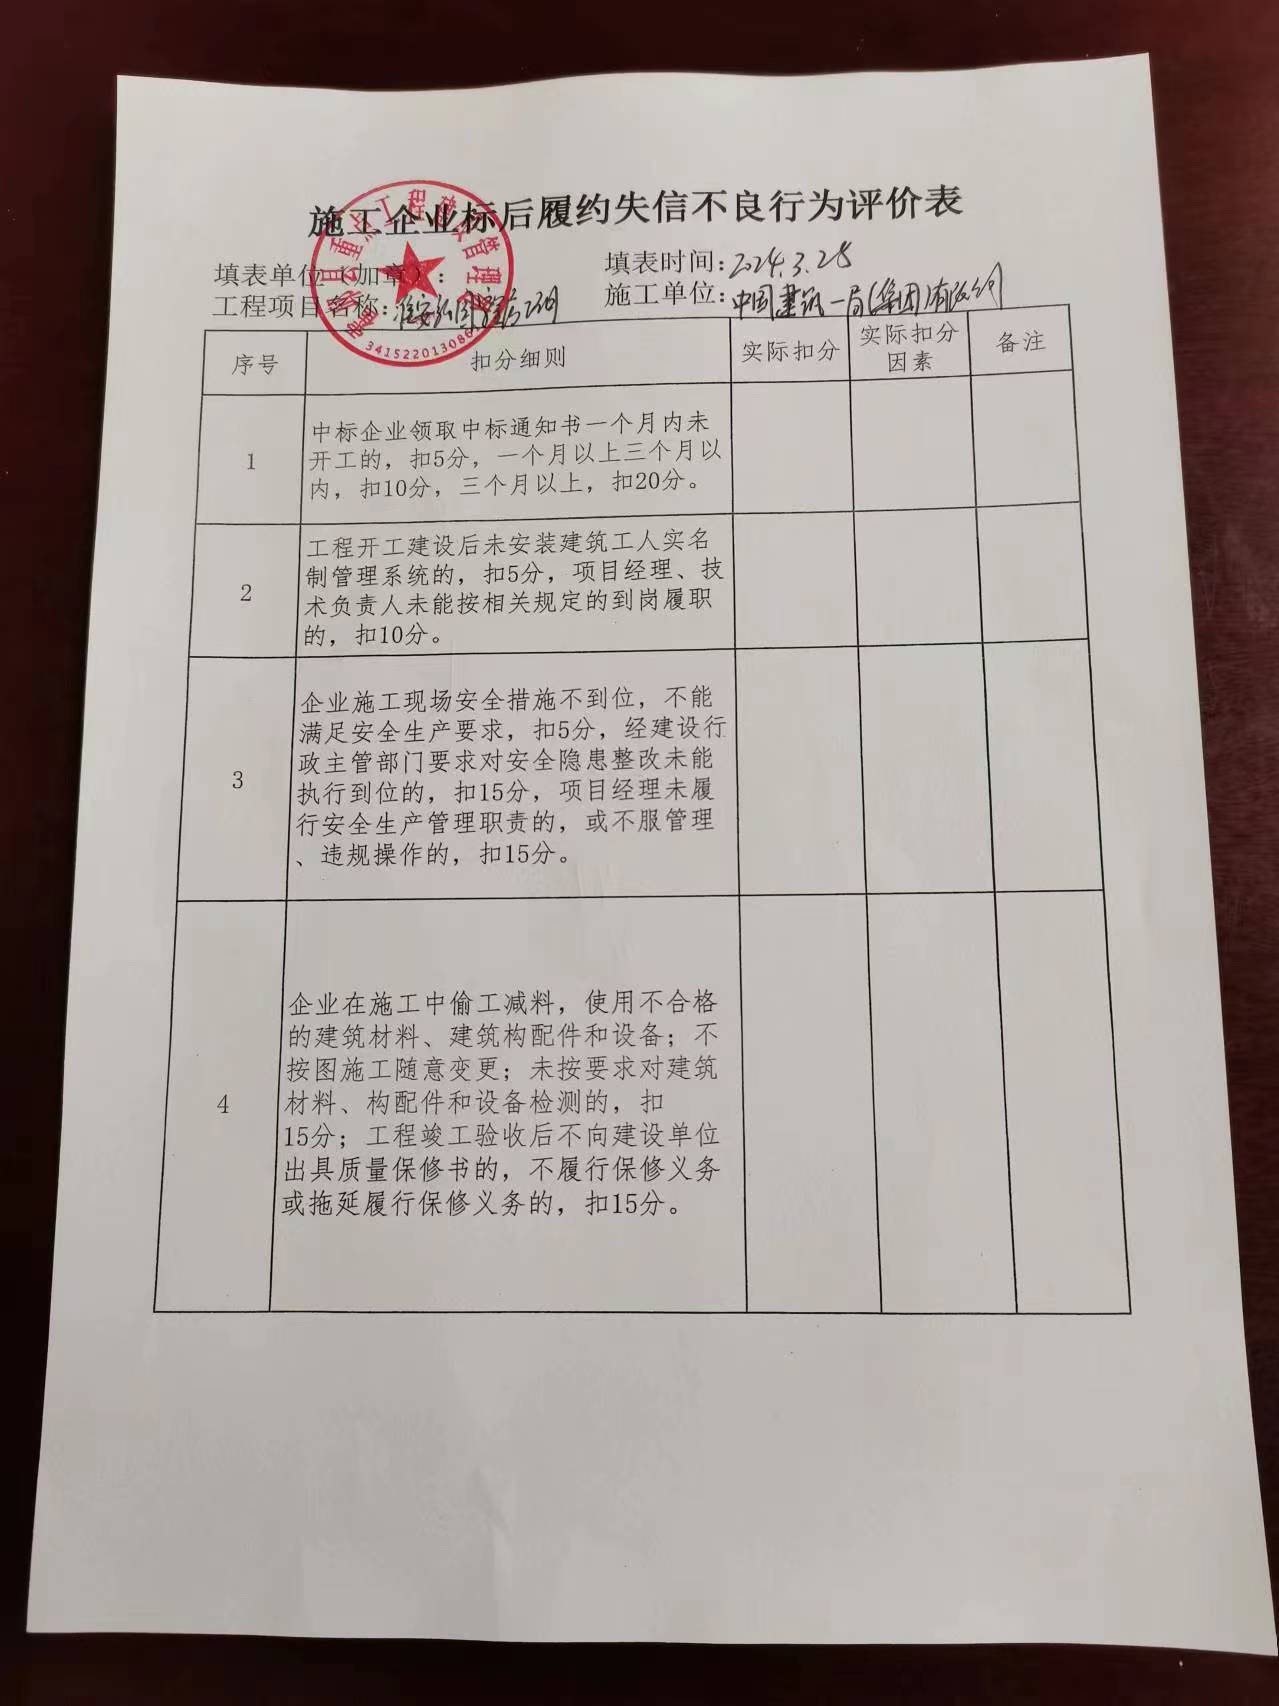 施工企业标后履约失信不良行为评价表
填表单位（加章）：
填表时间：2024.3.28
工程项目名称：
施工单位：中国建筑一局(集团)有限公司
341522013086
序号
扣分细则
实际扣分
实际扣分
因素
备注
1
中标企业领取中标通知书一个月内未
开工的，扣5分，一个月以上三个月以
内，扣10分，三个月以上，扣20分。
2
工程开工建设后未安装建筑工人实名
制管理系统的，扣5分，项目经理、技
术负责人未能按相关规定的到岗履职
的，扣10分。
3
企业施工现场安全措施不到位，不能
满足安全生产要求，扣5分，经建设行
政主管部门要求对安全隐患整改未能
执行到位的，扣15分，项目经理未履
行安全生产管理职责的，或不服管理
、违规操作的，扣15分。
4
企业在施工中偷工减料，使用不合格
的建筑材料、建筑构配件和设备；不
按图施工随意变更；未按要求对建筑
材料、构配件和设备检测的，扣
15分；工程竣工验收后不向建设单位
出具质量保修书的，不履行保修义务
或拖延履行保修义务的，扣15分。